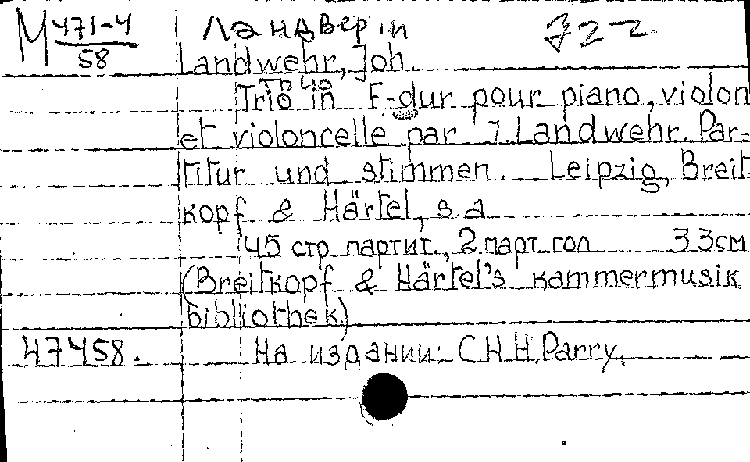 М 471-4 Ландвер in 722
58
Landwehr, Joh.
Trio
Trio in F-dur pour piano, violon
et violoncelle par J. Landwehr. Par-
titur und stimmen. Leipzig, Breit
kopf & Härtel, s a
45 стр партит., 2 парт гол 33см
(Breitkopf & Härtel's kammermusik
bibliothek)
47458. На издании: C.H.H. Parry.